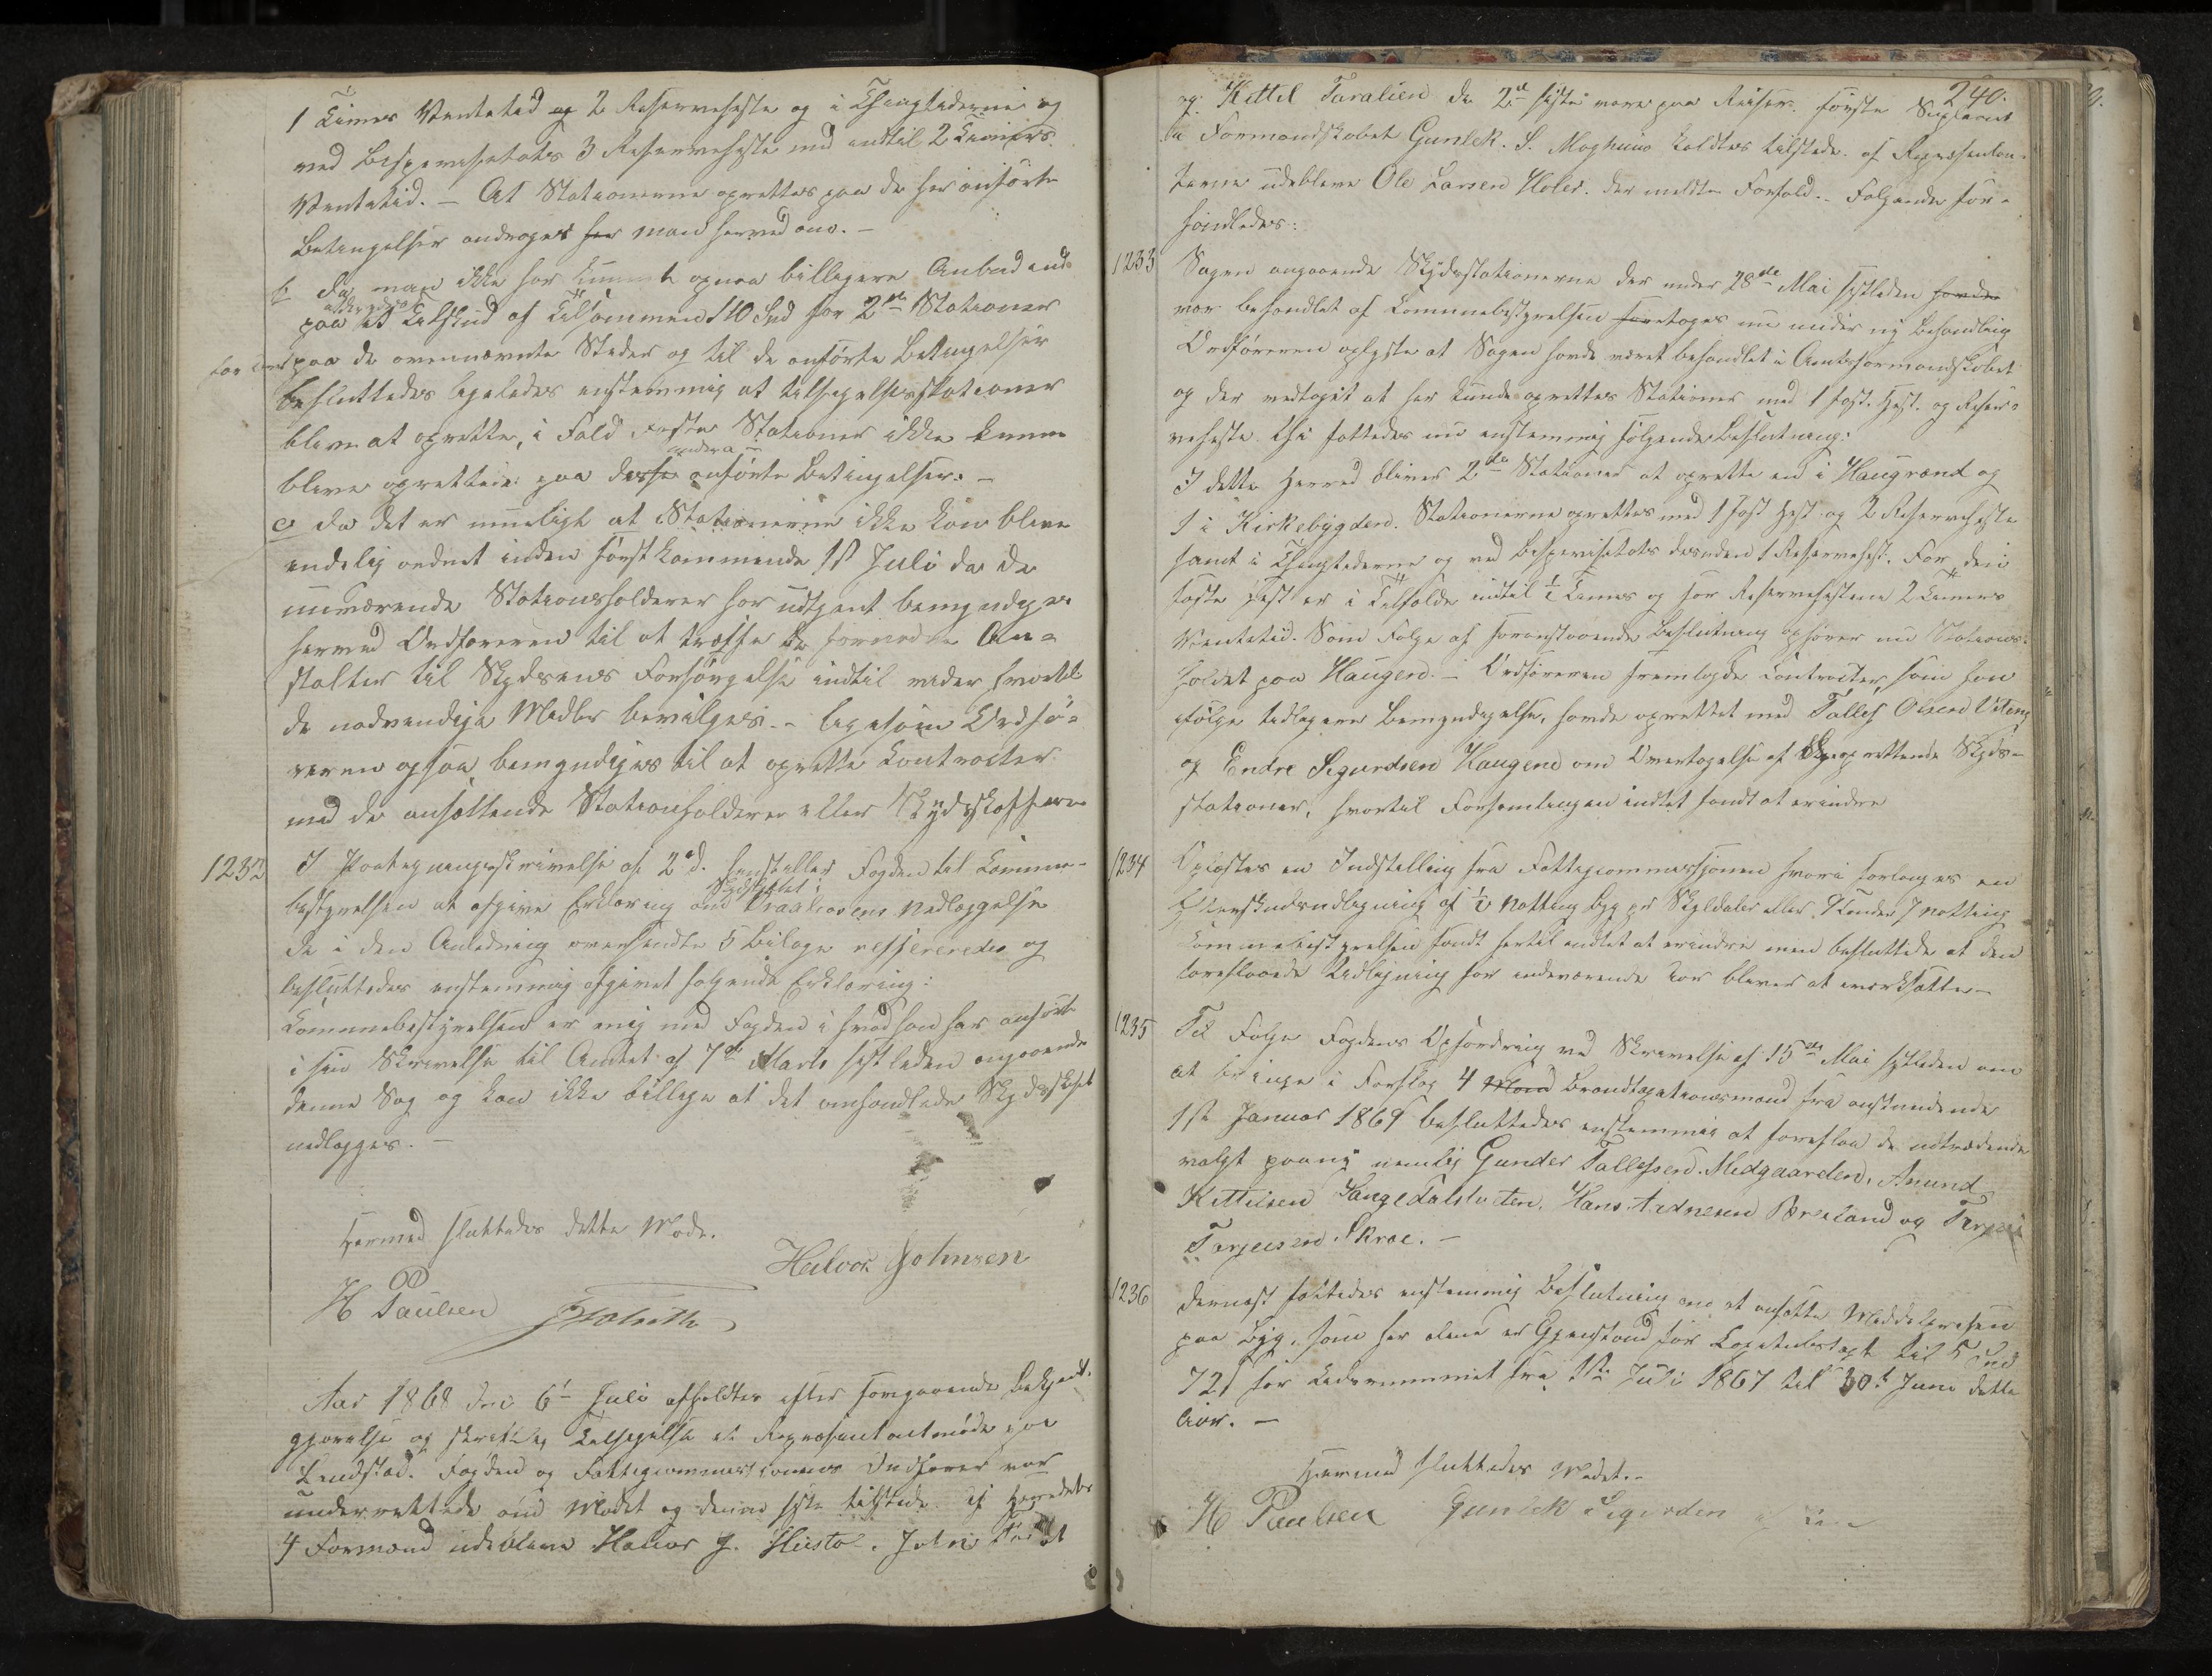 1 Times Ventetid og 2 Reserveheste og i Thingtiderne og
ved Bispevisitats 3 Reserveheste med indtil 2 Timers
Ventetid. – At Stationerne oprettes paa de her anførte
Betingelser andrages her man herved om. –
b Da man ikke har kunnet opnaa billigere Anbud end
paa et Tilskud af tilsammen 110 Spd for 2de Stationer
paa de ovennævnte Steder og til de anførte Betingelser
besluttedes ligeledes enstemmig at tilsigelsesstationer
bliver at oprette, i Fald faste Stationer ikke kunne
andra
blive oprettede paa disse anførte Betingelser. –
c Da det er umueligt at Stationerne ikke kan blive
endelig ordnet inden førstkommende 1st Juli da de
nuværende Stationsholdere har udtjent bemyndiges
herved Ordføreren til at træffe de fornødne An-
stalter til Skydsens Forsørgelse indtil videre hvortil
de nødvendige Midler bevilges. – ligesom Ordfø-
reren ogsaa bemyndiges til at oprette Contracter
med de ansættende Stationsholdere eller Skydsskaffere
1232 I Paategningsskrivelse af 2 d. henstiller Fogden til Commu-
Skydsskiftet i
bestyrelsen at afgive Erklæring om Nedlæggelse
de i den Anledning oversendte 5 Bilage reffereredes og
besluttedes enstemmig afgivet følgende Erklæring:
Communebestyrelsen er enig med Fogden i hvad han har anført
i sin Skrivelse til Amtet af 7de Marts sistleden angaaende
denne Sag og kan ikke billige at det omhandlede Skydsskift
nedlægges. –
Hermed sluttedes dette Møde.
Halvor Johnsen
H Paulsen
Aar 1868 den 6te Juli afholdtes efter foregaaende Bekjendt-
gjørelse og skriftlig Tilsigelse et Repræsentantmøde paa
Lindstad. Fogden og Fattigcommissionens Ordfører var
underrettede om Mødet og denne siste tilstede. Af Herredets
4 Formænd udebleve Halvor J. Huistol, John
240.
og Kittel Taralien de 2de siste vare paa Reiser. første Supleant
i Formandskabet Gunlek. S. Moghuus kaldtes tilstede. af Repræsentan-
terne udebleve Ole Larsen Holer. der meldte Forfald. – Følgende for-
handledes:
1233 Sagen angaaende Skydsstationerne der under 28de Mai sistleden havde
var behandlet af Communebestyrelsen foretoges nu under ny Behandling
Ordføreren oplyste at Sagen havde været behandlet i Amtsformandskabet
og der vedtaget at her kunde oprettes Stationer med 1 fast Hest. og Reser-
veheste. Thi fattedes nu enstemmig følgende Beslutning:
I dette Herred bliver 2de Stationer at oprette en i Haugrænd og
1 i Kirkebygden. Stationerne oprettes med 1 fast Hest og 2 Reserveheste
samt i Thingtiderne og ved Bispevisitats desuden 1 Reservehest. For den
faste Hest er i Tilfælde indtil ½ Times og for Reservehestene 2 Timers
Ventetid. Som Følge af foranstaaende Beslutning ophører nu Stations-
holdet paa Haugen. – Ordføreren fremlagde Contracter, som han
ifølge tidligere Bemyndigelse, havde oprettet med Tallef Olsen
og Endre Sigurdsen Haugene om Overtagelse af oprettende Skyds-
stationer, hvortil Forsamlingen indtet fandt at erindre
1234 Oplæstes en Indstilling fra Fattigcommissjonen hvori forlanges en
Efterskudsudligning af ½ Notting Byg pr Skyldaler eller. 9 Tønder 7 Notting
Communebestyrelsen fandt hertil indtet at erindre men besluttede at den
foreslaaede Udligning for indeværende Aar bliver at iværksætte. –
1235 Til Følge Fogdens Opfordring ved Skrivelse af 15de Mai sistleden om
at bringe i Forslag 4 Mænd Brandtaxationsmænd fra anstundende
1ste Januar 1869 besluttedes enstemmig at foreslaa de udtrædende
valgt paany nemlig Gunder Tallefsen Midgaarden, Anund
Kittilsen, Hans Aadnesen Breiland og
Tarjeisen Skroe. –
1236 Dernæst fattedes enstemmig Beslutning om at ansætte Middelprisen
paa Byg, som her alene er Gjenstand for Capitulstaxt til 5 Spd
72 s for Tidsrummet fra 1ste Juli 1867 til 30te Juni dette
Aar. –
Hermed sluttedes Mødet. –
H Paulsen Gunlek Sigurdsen